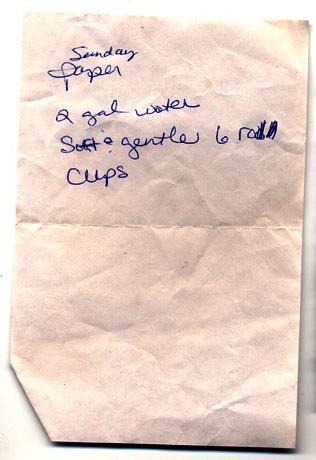 Sunday
paper
2 gal water
Soft & gentle 6 roll
Cups